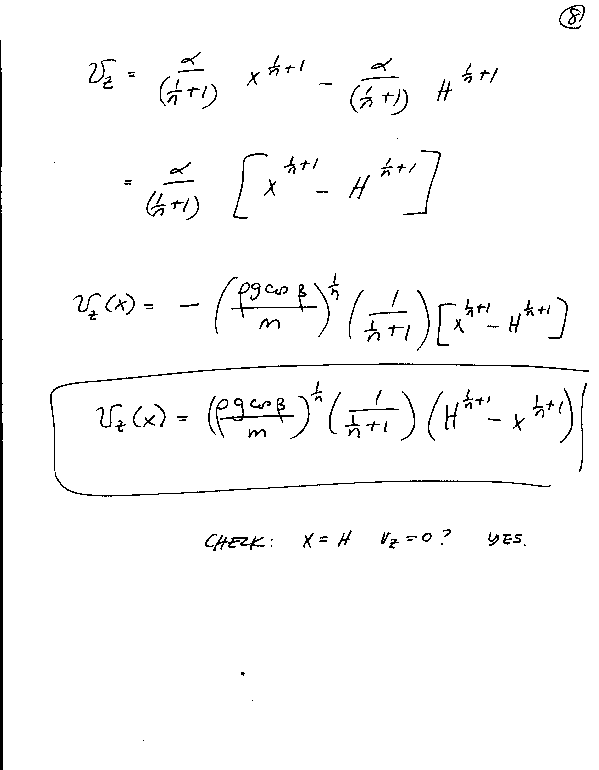 8
v_z = α/(1/n+1) x^(1/n+1) − α/(1/n+1) H^(1/n+1)
= α/(1/n+1) [x^(1/n+1) − H^(1/n+1)]
v_z(x) = − (ρg cos β/m)^(1/n) (1/(1/n+1)) [x^(1/n+1) − H^(1/n+1)]
v_z(x) = (ρg cos β/m)^(1/n) (1/(1/n+1)) (H^(1/n+1) − x^(1/n+1))
CHECK: X = H V_z = 0? YES.